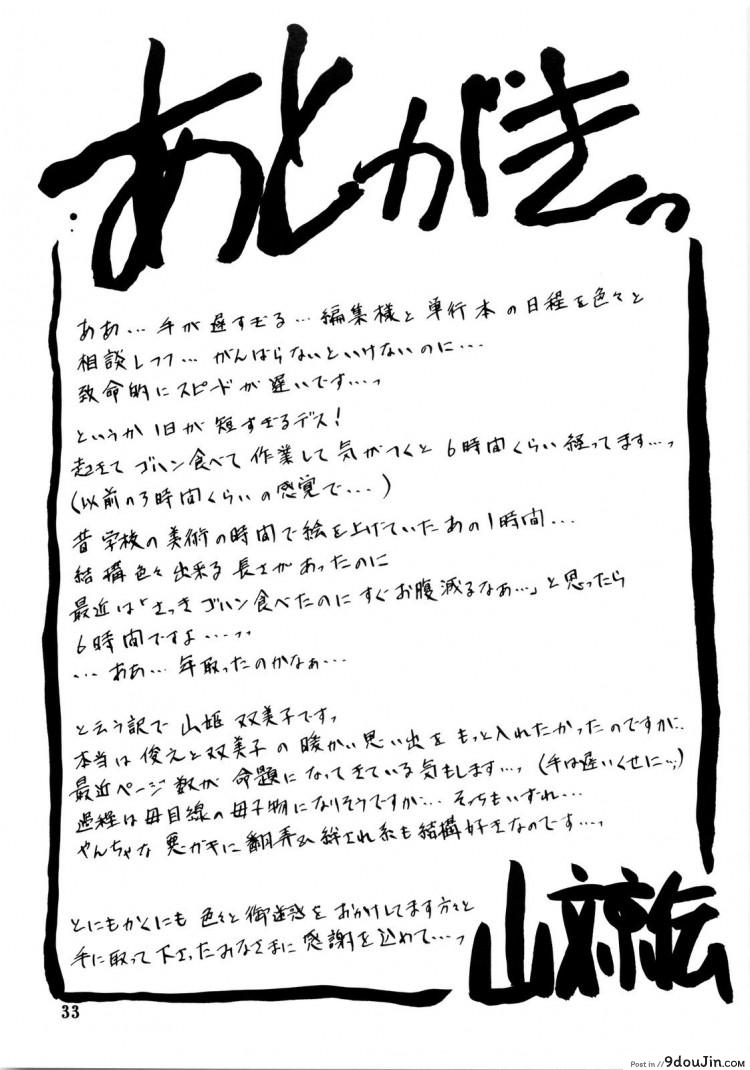 あとがきっ
ああ…手が遅すぎる…編集様と単行本の日程を色々と
相談しつつ…がんばらないといけないのに…
致命的にスピードが遅いです…っ
というか1日が短すぎるデス!
起きてゴハン食べて作業して気がつくと6時間くらい経ってます…っ
(以前の3時間くらいの感覚で…)
昔学校の美術の時間で絵を上げていたあの1時間…
結構色々出来る長さがあったのに
最近は「さっきゴハン食べたのにすぐお腹減るなぁ…」と思ったら
6時間ですよ……っっ
…ああ…年取ったのかなぁ…
と云う訳で山姫双美子ですっ
本当は俊之と双美子の暖かい思い出をもっと入れたかったのですが…
最近ページ数が命題になってきている気もします…っ(手は遅いくせに…)
過程は母目線の母子物になりそうですが…そっちもいずれ…
やんちゃな悪ガキに翻弄され系も結構好きなのです…っ
とにもかくにも色々と御迷惑をおかけしてます方々と
手に取って下さったみなさまに感謝を込めて…っ
山文京伝
33
Post in // 9douJin.com